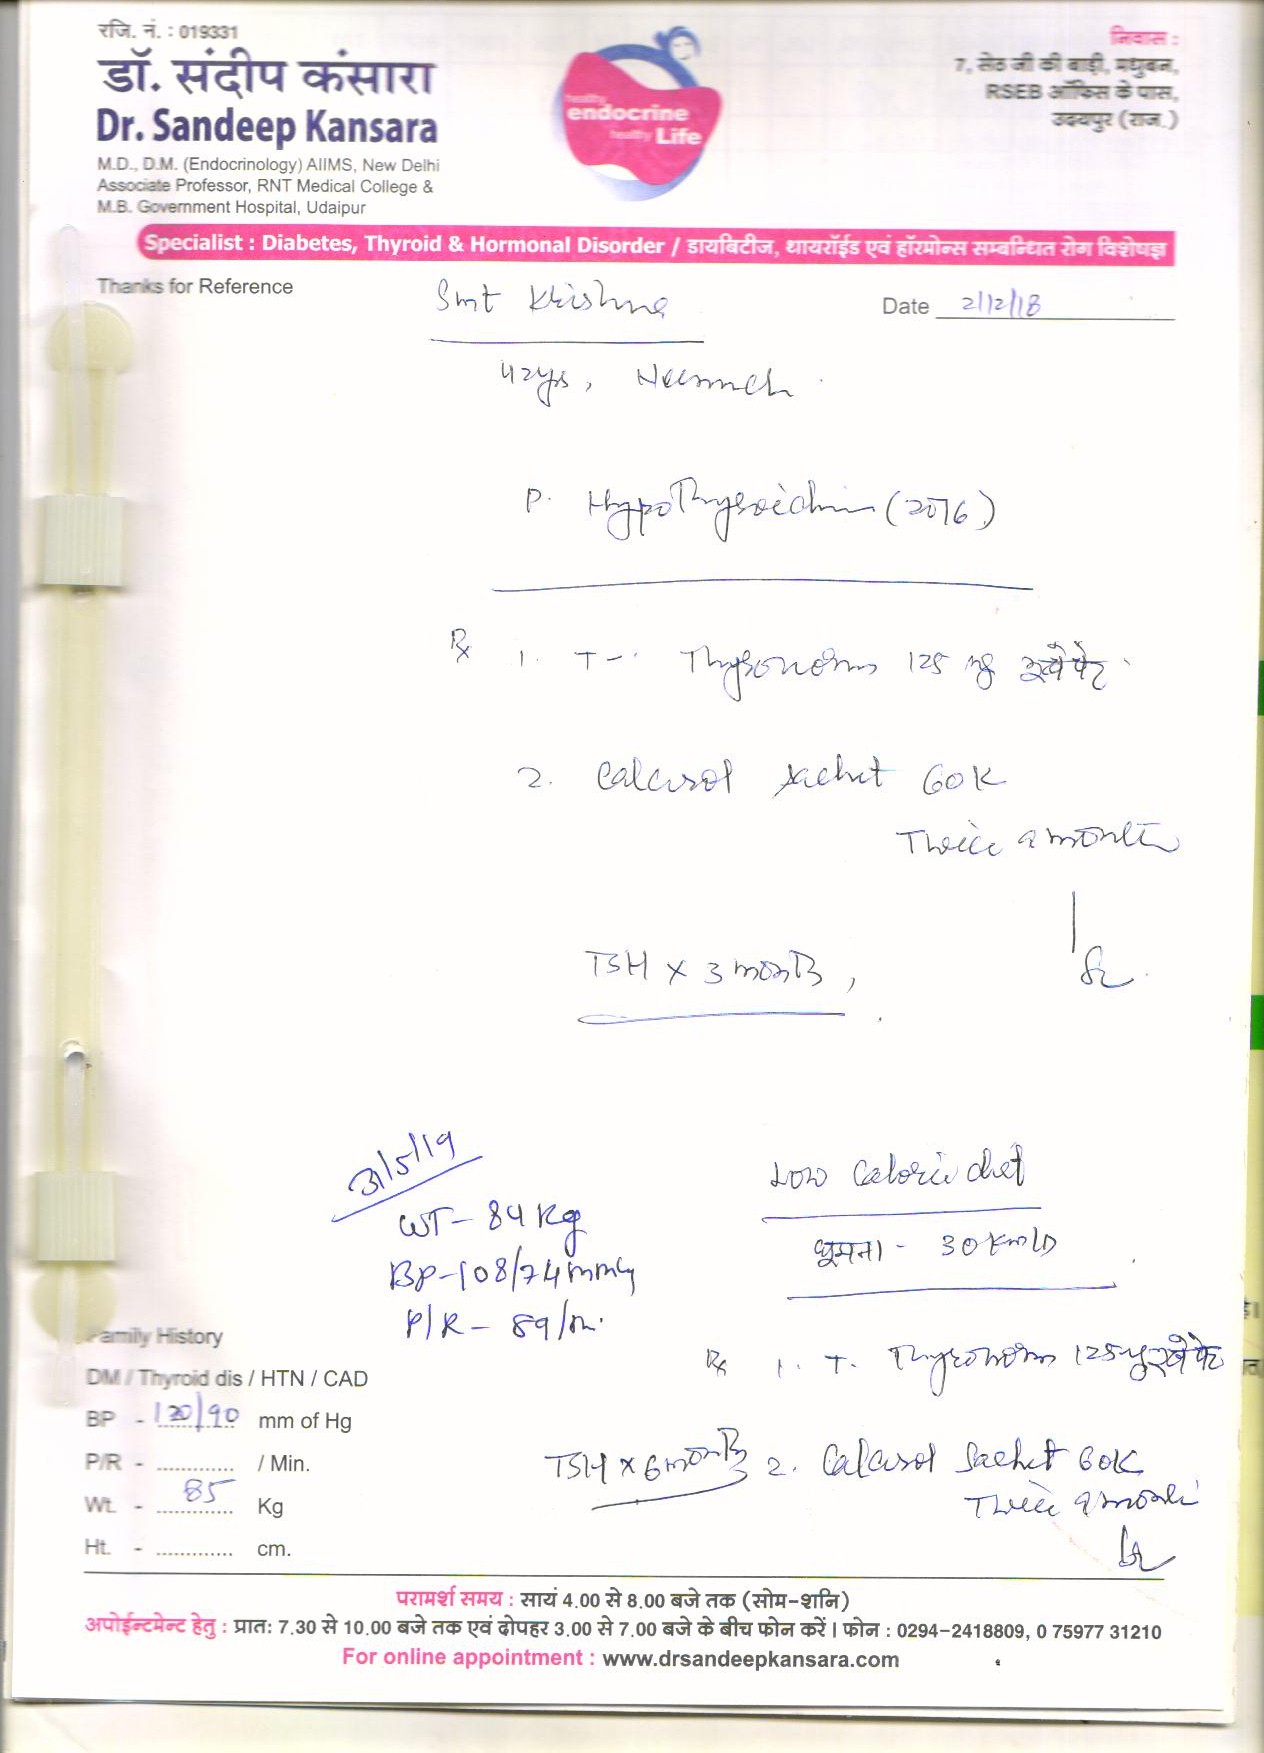 रजि. नं. : 019331
डॉ. संदीप कंसारा
Dr. Sandeep Kansara
M.D., D.M. (Endocrinology) AIIMS, New Delhi
Associate Professor, RNT Medical College &
M.B. Government Hospital, Udaipur
healthy
endocrine
healthy Life
निवास :
7, सेठ जी की बाड़ी, मधुबन,
RSEB ऑफिस के पास,
उदयपुर (राज.)
Specialist : Diabetes, Thyroid & Hormonal Disorder / डायबिटीज, थायरॉईड एवं हॉरमोन्स सम्बन्धित रोग विशेषज्ञ
Thanks for Reference
Smt Krishna
Date 2/12/18
42yrs, Neemuch
P. Hypothyroidism (2016)
Rx 1. T-. Thyronorm 125 ug
2. Calcirol sachet 60K
Twice a month
TSH x 3 month,
3/5/19
WT- 84 Kg
BP-108/74 mmHg
P/R - 89/m.
Low Calorie diet
घूमना - 30 Km/D
Rx 1. T. Thyronorm 125
TSH x 6 month
2. Calcirol Sachet 60K
Twice a month
Family History
DM / Thyroid dis / HTN / CAD
BP - 120/90 mm of Hg
P/R - ............. / Min.
Wt. - 85 Kg
Ht. - ............. cm.
परामर्श समय : सायं 4.00 से 8.00 बजे तक (सोम-शनि)
अपोईन्टमेन्ट हेतु : प्रात: 7.30 से 10.00 बजे तक एवं दोपहर 3.00 से 7.00 बजे के बीच फोन करें । फोन : 0294-2418809, 0 75977 31210
For online appointment : www.drsandeepkansara.com